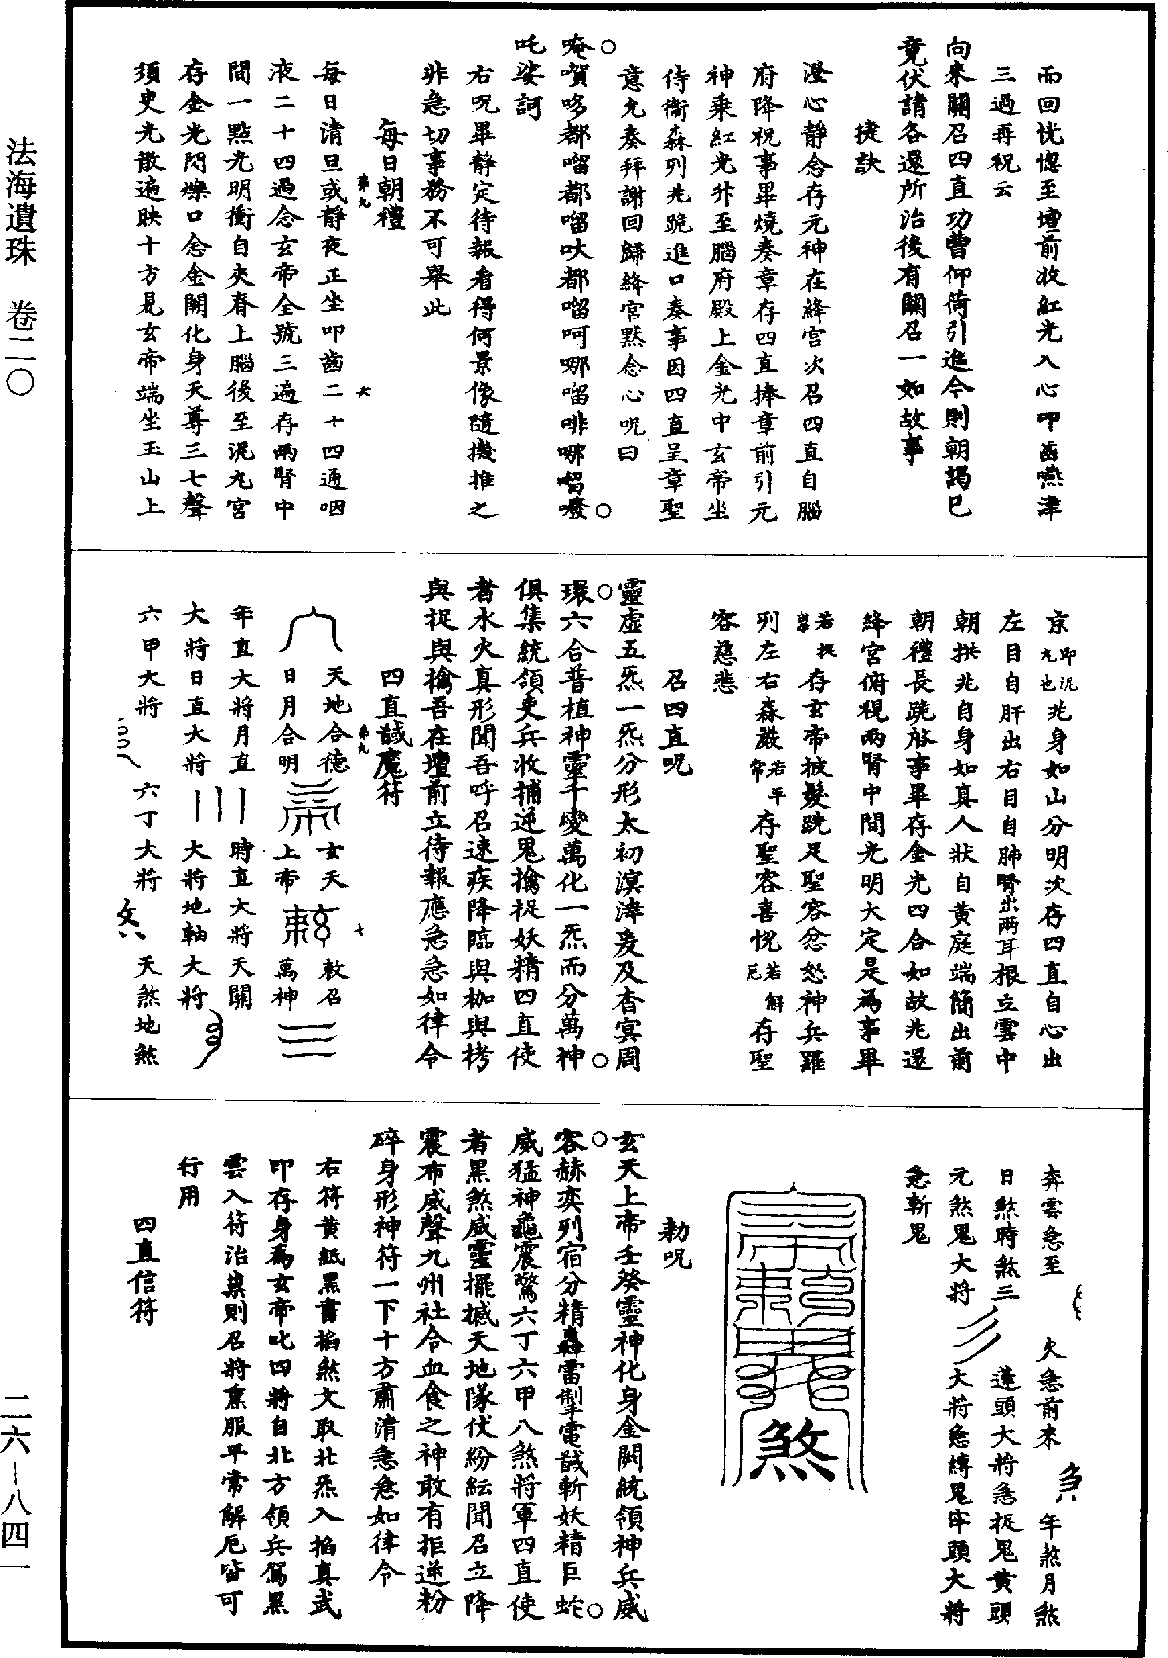 而回恍惚至壇前收紅光入心叩齒嚥津
三過再祝云
向來關召四直功曹仰荷引進今則朝謁已
竟伏請各還所治後有關召一如故事
捷訣
澄心靜念存元神在絳宮次召四直自腦
府降祝事畢燒奏章存四直捧章前引元
神乘紅光升至腦府殿上金光中玄帝坐
侍衛森列兆跪進口奏事因四直呈章聖
意允奏拜謝回歸絳宮默念心呪曰
唵㗒哆都嚕都嚕吠都嚕呵哪嚕啡哪
吒娑訶
右呪畢靜定待報看得何景像隨機推之
非急切事務不可舉此
每日朝禮
每日清旦或靜夜正坐叩齒二十四通咽
液二十四過念玄帝全號三遍存兩腎中
間一點光明衝自夾脊上腦後至泥丸宮
存金光閃爍口念金闕化身天尊三七聲
須臾光散遍映十方見玄帝端坐玉山上
第九
六
京即泥丸也兆身如山分明次存四直自心出
左目自肝出右目自肺腎出兩耳根立雲中
朝拱兆自身如真人狀自黃庭端簡出前
朝禮長跪啓事畢存金光四合如故兆還
絳宮俯視兩腎中間光明大定是為事畢
若提祟存玄帝披髮跣足聖容忿怒神兵羅
列左右森嚴若平常存聖容喜悅若解厄存聖
容慈悲
召四直呪
靈虛五炁一炁分形太初溟涬爰及杳冥周
環六合普植神靈千變萬化一炁而分萬神
俱集統領吏兵收捕逆鬼擒捉妖精四直使
者水火真形聞吾呼召速疾降臨與枷與拷
與捉與擒吾在壇前立待報應急急如律令
四直馘魔符
第九
七
天地合德
日月合明
玄天
上帝
敕召
萬神
年直大將月直
大將日直大將
時直大將天關
大將地軸大將
六甲大將
六丁大將
天煞地煞
奔雲急至
火急前來
年煞月煞
日煞時煞三
蓬頭大將急捉鬼黃頭
元煞鬼大將
大將急縛鬼牢頭大將
急斬鬼
煞
勅呪
玄天上帝壬癸靈神化身金闕統領神兵威
容赫奕列宿分精轟雷掣電馘斬妖精巨蛇
威猛神龜震驚六丁六甲八煞將軍四直使
者黑煞威靈擺撼天地隊仗紛紜聞召立降
震布威聲九州社令血食之神敢有拒逆粉
碎身形神符一下十方肅清急急如律令
右符黃紙黑書掐煞文取北炁入掐真武
印存身為玄帝叱四將自北方領兵駕黑
雲入符治祟則召將熏服平常解厄皆可
行用
四直信符
法海遺珠 卷二〇
二六-八四一